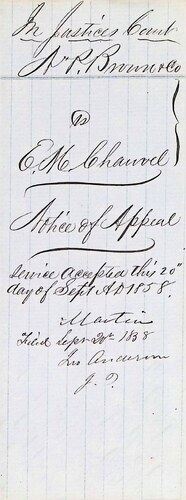 In Justices Court
A. P. Brown & Co
vs
E. M. Chauvel
Notice of Appeal
Service accepted this 20"
day of Sept AD 1858.
Martin
Filed Sept 20th 1858
Jno Anderson
J. P.